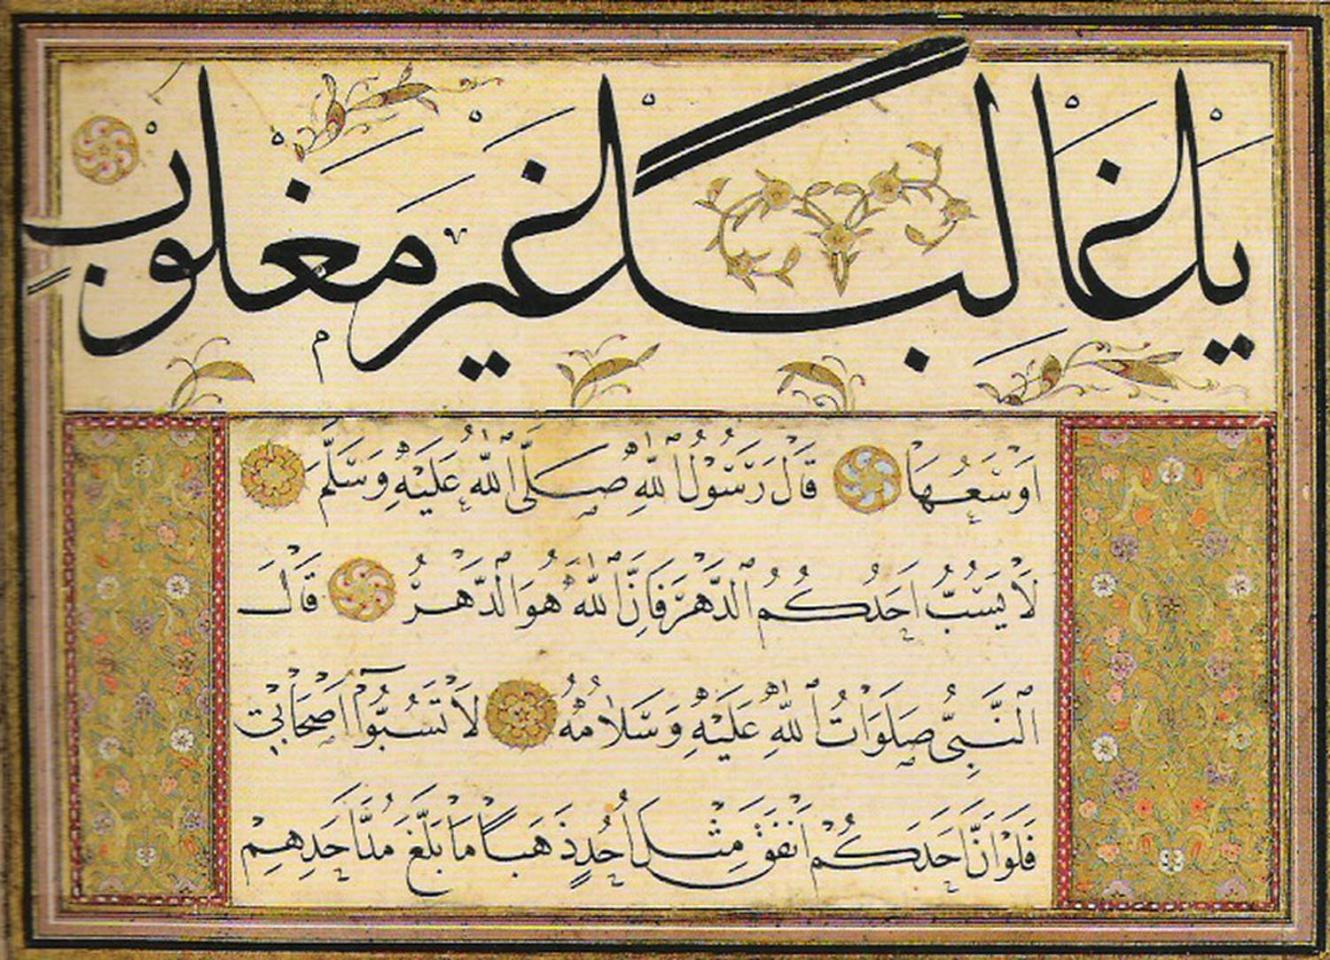 يا غالبا غير مغلوب
اَوْسَعُهَا قَالَ رَسُولُ اللهِ صَلَّى اللهُ عَلَيْهِ وَسَلَّمَ
لَا يَسُبُّ اَحَدُكُمُ الدَّهْرَ فَاِنَّ اللهَ هُوَ الدَّهْرُ قَالَ
النَّبِيُّ صَلَوَاتُ اللهِ عَلَيْهِ وَسَلَامُهُ لَا تَسُبُّوا اَصْحَابِي
فَلَوْ اَنَّ اَحَدَكُمْ اَنْفَقَ مِثْلَ اُحُدٍ ذَهَبًا مَا بَلَغَ مُدَّ اَحَدِهِمْ